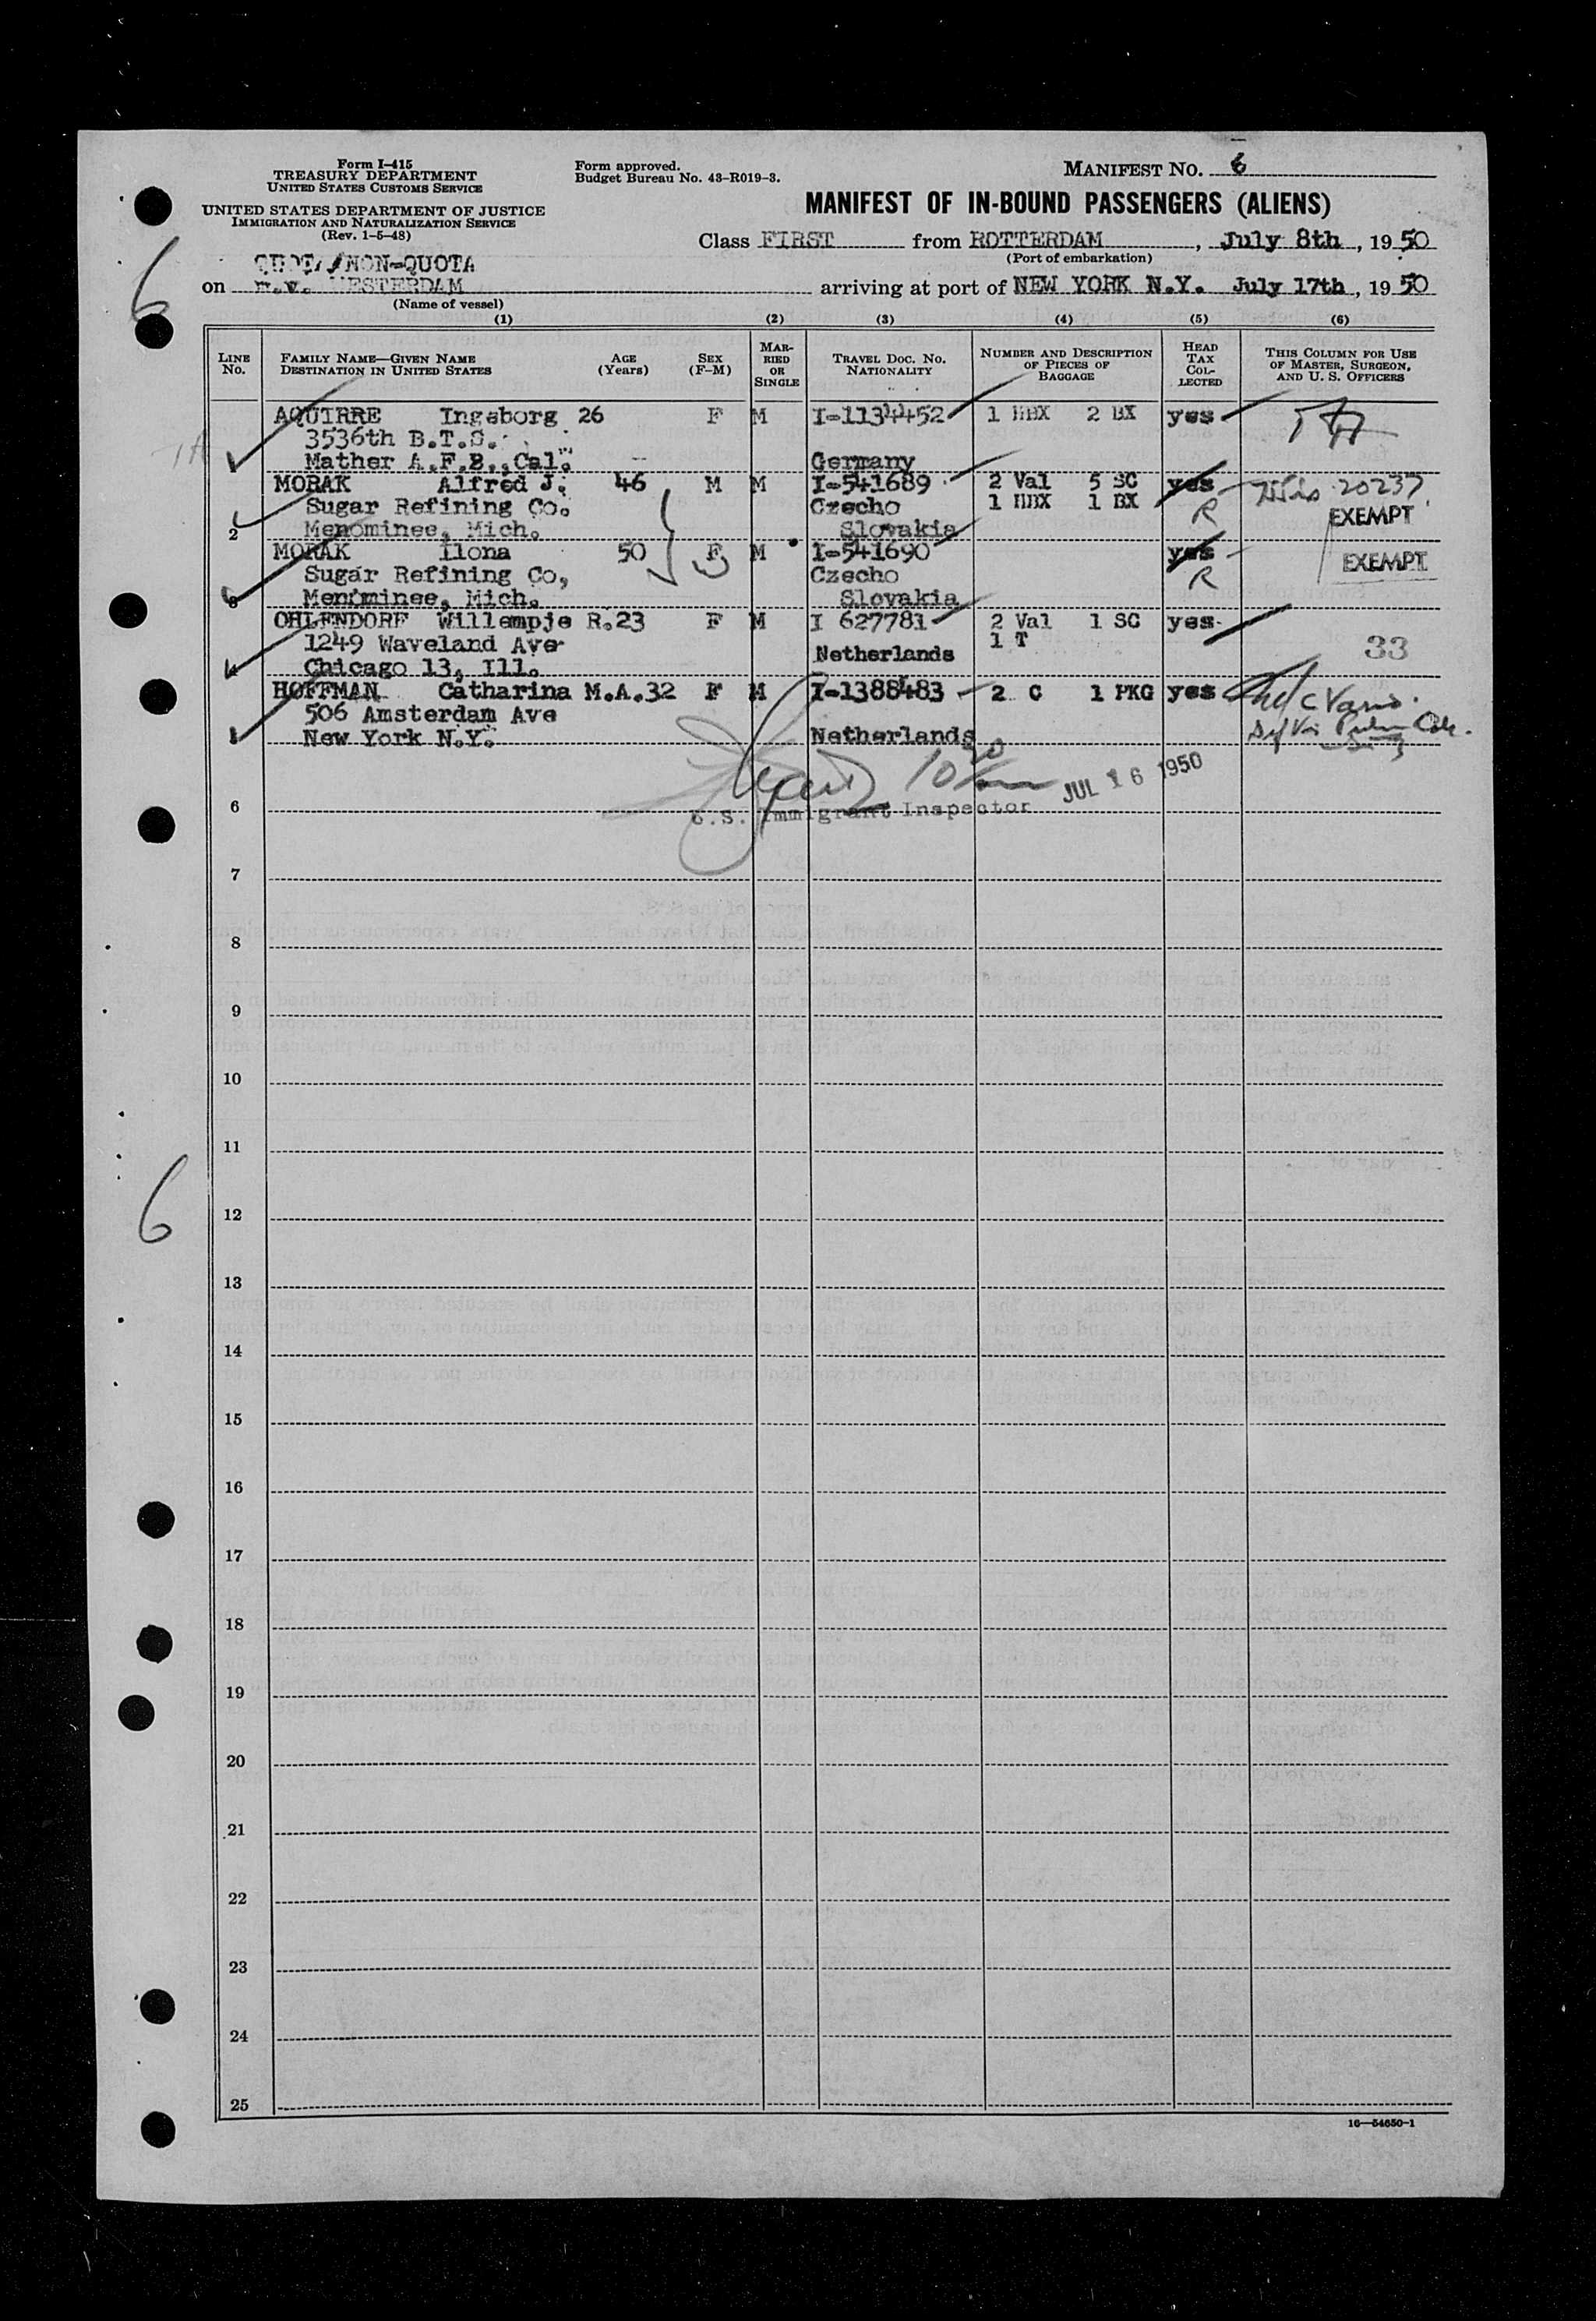 Form I-415
TREASURY DEPARTMENT
UNITED STATES CUSTOMS SERVICE
UNITED STATES DEPARTMENT OF JUSTICE
IMMIGRATION AND NATURALIZATION SERVICE
(Rev. 1-5-48)
Form approved.
Budget Bureau No. 43-R019-3.
MANIFEST NO. 6
MANIFEST OF IN-BOUND PASSENGERS (ALIENS)
Class FIRST from ROTTERDAM, July 8th, 1950
(Port of embarkation)
QUOTA/NON-QUOTA
on m.v. WESTERDAM arriving at port of NEW YORK N.Y. July 17th, 1950
(Name of vessel)
6
(1) (2) (3) (4) (5) (6)
LINE No. FAMILY NAME—GIVEN NAME DESTINATION IN UNITED STATES AGE (Years) SEX (F-M) MARRIED OR SINGLE TRAVEL DOC. NO. NATIONALITY NUMBER AND DESCRIPTION OF PIECES OF BAGGAGE HEAD TAX COLLECTED THIS COLUMN FOR USE OF MASTER, SURGEON, AND U. S. OFFICERS
AQUIRRE Ingeborg 26 F M I-1134452 1 HBX 2 BX yes
3536th B.T.S.
Mather A.F.B., Cal. Germany
MORAK Alfred J. 46 M M I-541689 2 Val 5 SC yes 20237
Sugar Refining Co. Czecho 1 HBX 1 BX R EXEMPT
2 Menominee, Mich. Slovakia
MORAK Ilona 50 F M I-541690 yes EXEMPT
Sugar Refining Co, Czecho R
3 Menominee, Mich. Slovakia
OHLENDORF Willempje R. 23 F M I 627781 2 Val 1 SC yes
1249 Waveland Ave 1 T
4 Chicago 13, Ill. Netherlands 33
HOFFMAN Catharina M.A. 32 F M I-1388483 2 C 1 PKG yes
506 Amsterdam Ave
New York N.Y. Netherlands
10 30 JUL 16 1950
U.S. Immigrant Inspector
6
7
8
9
10
11
6
12
13
14
15
16
17
18
19
20
21
22
23
24
25
16—54650-1